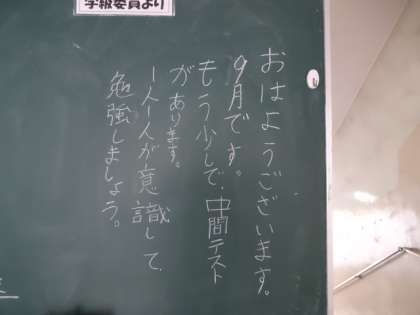 学級委員より
おはようございます。
9月です。
もう少しで、中間テスト
があります。
一人一人が意識して
勉強しましょう。